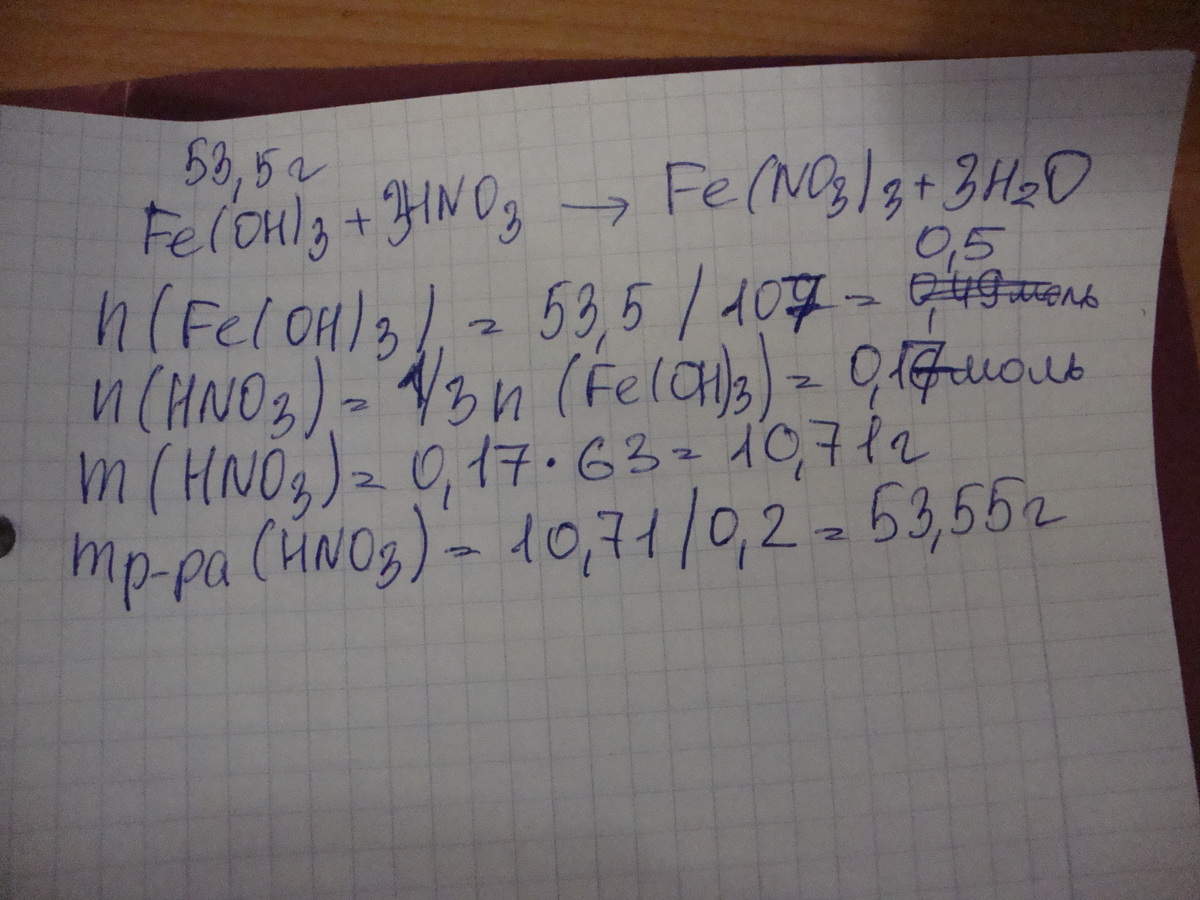 53,5г
Fe(OH)3 + 3HNO3 → Fe(NO3)3 + 3H2O
n(Fe(OH)3) = 53,5 / 107 = 0,5 0,49 моль
n(HNO3) = 1/3 n (Fe(OH)3) = 0,17 моль
m(HNO3) = 0,17 · 63 = 10,71г
mр-ра (HNO3) = 10,71/0,2 = 53,55г